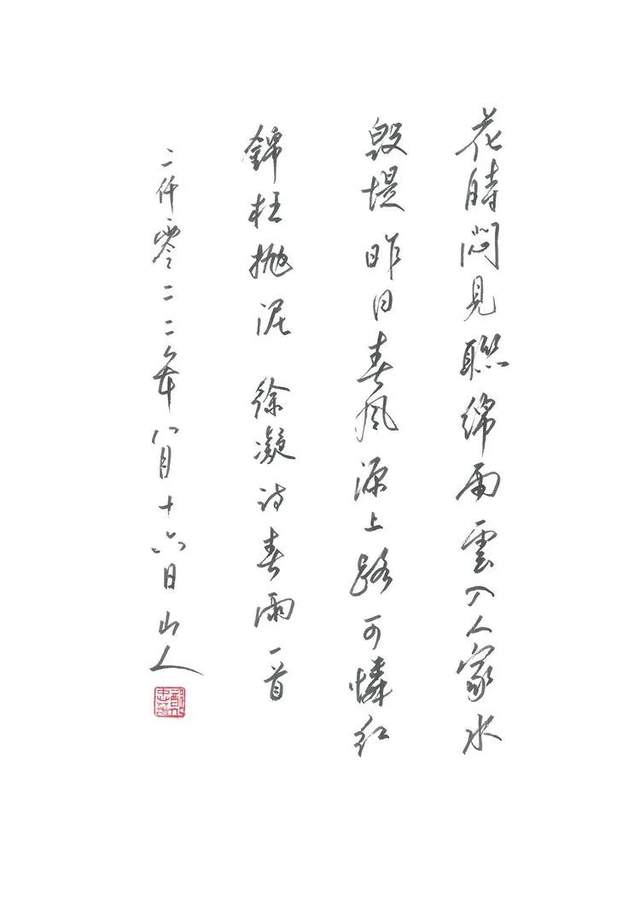 花時悶見聯綿雨雲入人家水
毀堤昨日春風源上路可憐紅
錦枉拋泥 徐凝詩春雨一首
二仟零二二年八月十六日山人